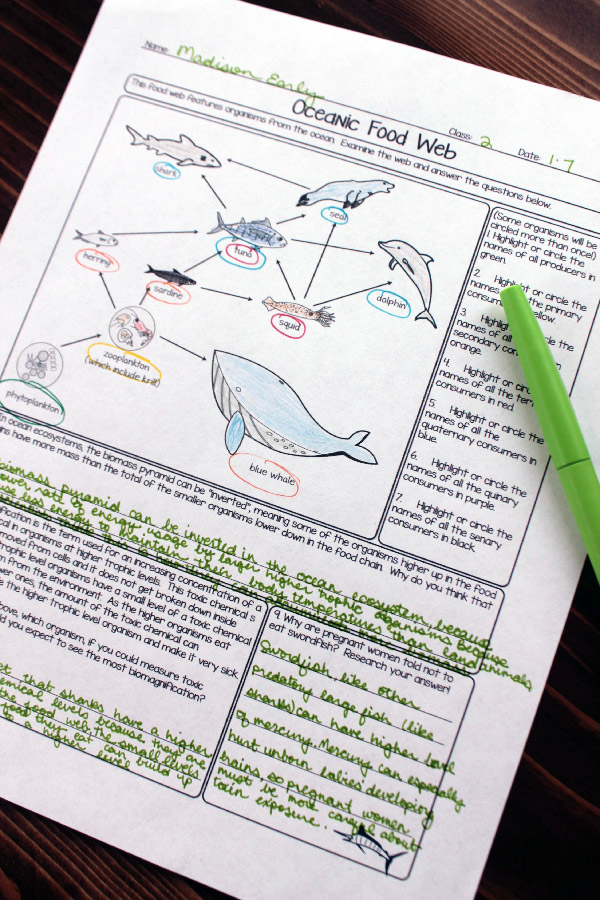 Name: Madison Early
Class: 2 Date: 1.7
Oceanic Food Web
This food web features organisms from the ocean. Examine the web and answer the questions below.
shark
seal
tuna
herring
dolphin
sardine
squid
zooplankton
(which include krill)
phytoplankton
blue whale
(Some organisms will be
circled more than once!)
1. Highlight or circle the
names of all producers in
green.
2. Highlight or circle the
names the primary
yellow.
3.
names of all
secondary
orange.
4. Highlight or
names of all the
consumers in red.
5. Highlight or circle the
names of all the
quaternary consumers in
blue.
6. Highlight or circle the
names of all the quinary
consumers in purple.
7. Highlight or circle the
names of all the senary
consumers in black.
In ocean ecosystems, the biomass pyramid can be "inverted", meaning some of the organisms higher up in the food
have more mass than the total of the smaller organisms lower down in the food chain. Why do you think that
biomass pyramid can be inverted in the ocean ecosystem because
rate of energy usage by larger, higher trophic organisms because
less energy to maintain their body temperatures than land animals
is the term used for an increasing concentration of a
in organisms at higher trophic levels. This toxic chemical is
from cells and it does not get broken down inside
trophic level organisms have a small level of a toxic chemical
from the environment. As the higher organisms eat
ones, the amount of the toxic chemical can
the higher trophic level organism and make it very sick.
which organism, if you could measure toxic
you expect to see the most biomagnification?
that sharks have a higher
chemical levels because they are
the food web, the small levels
food they eat can build up
higher level
9. Why are pregnant women told not to
eat swordfish? Research your answer!
Swordfish, like other
predatory large fish (like
sharks) can have higher level
of mercury. Mercury can especially
hurt unborn babies' developing
brains, so pregnant women
must be more careful about
toxin exposure.